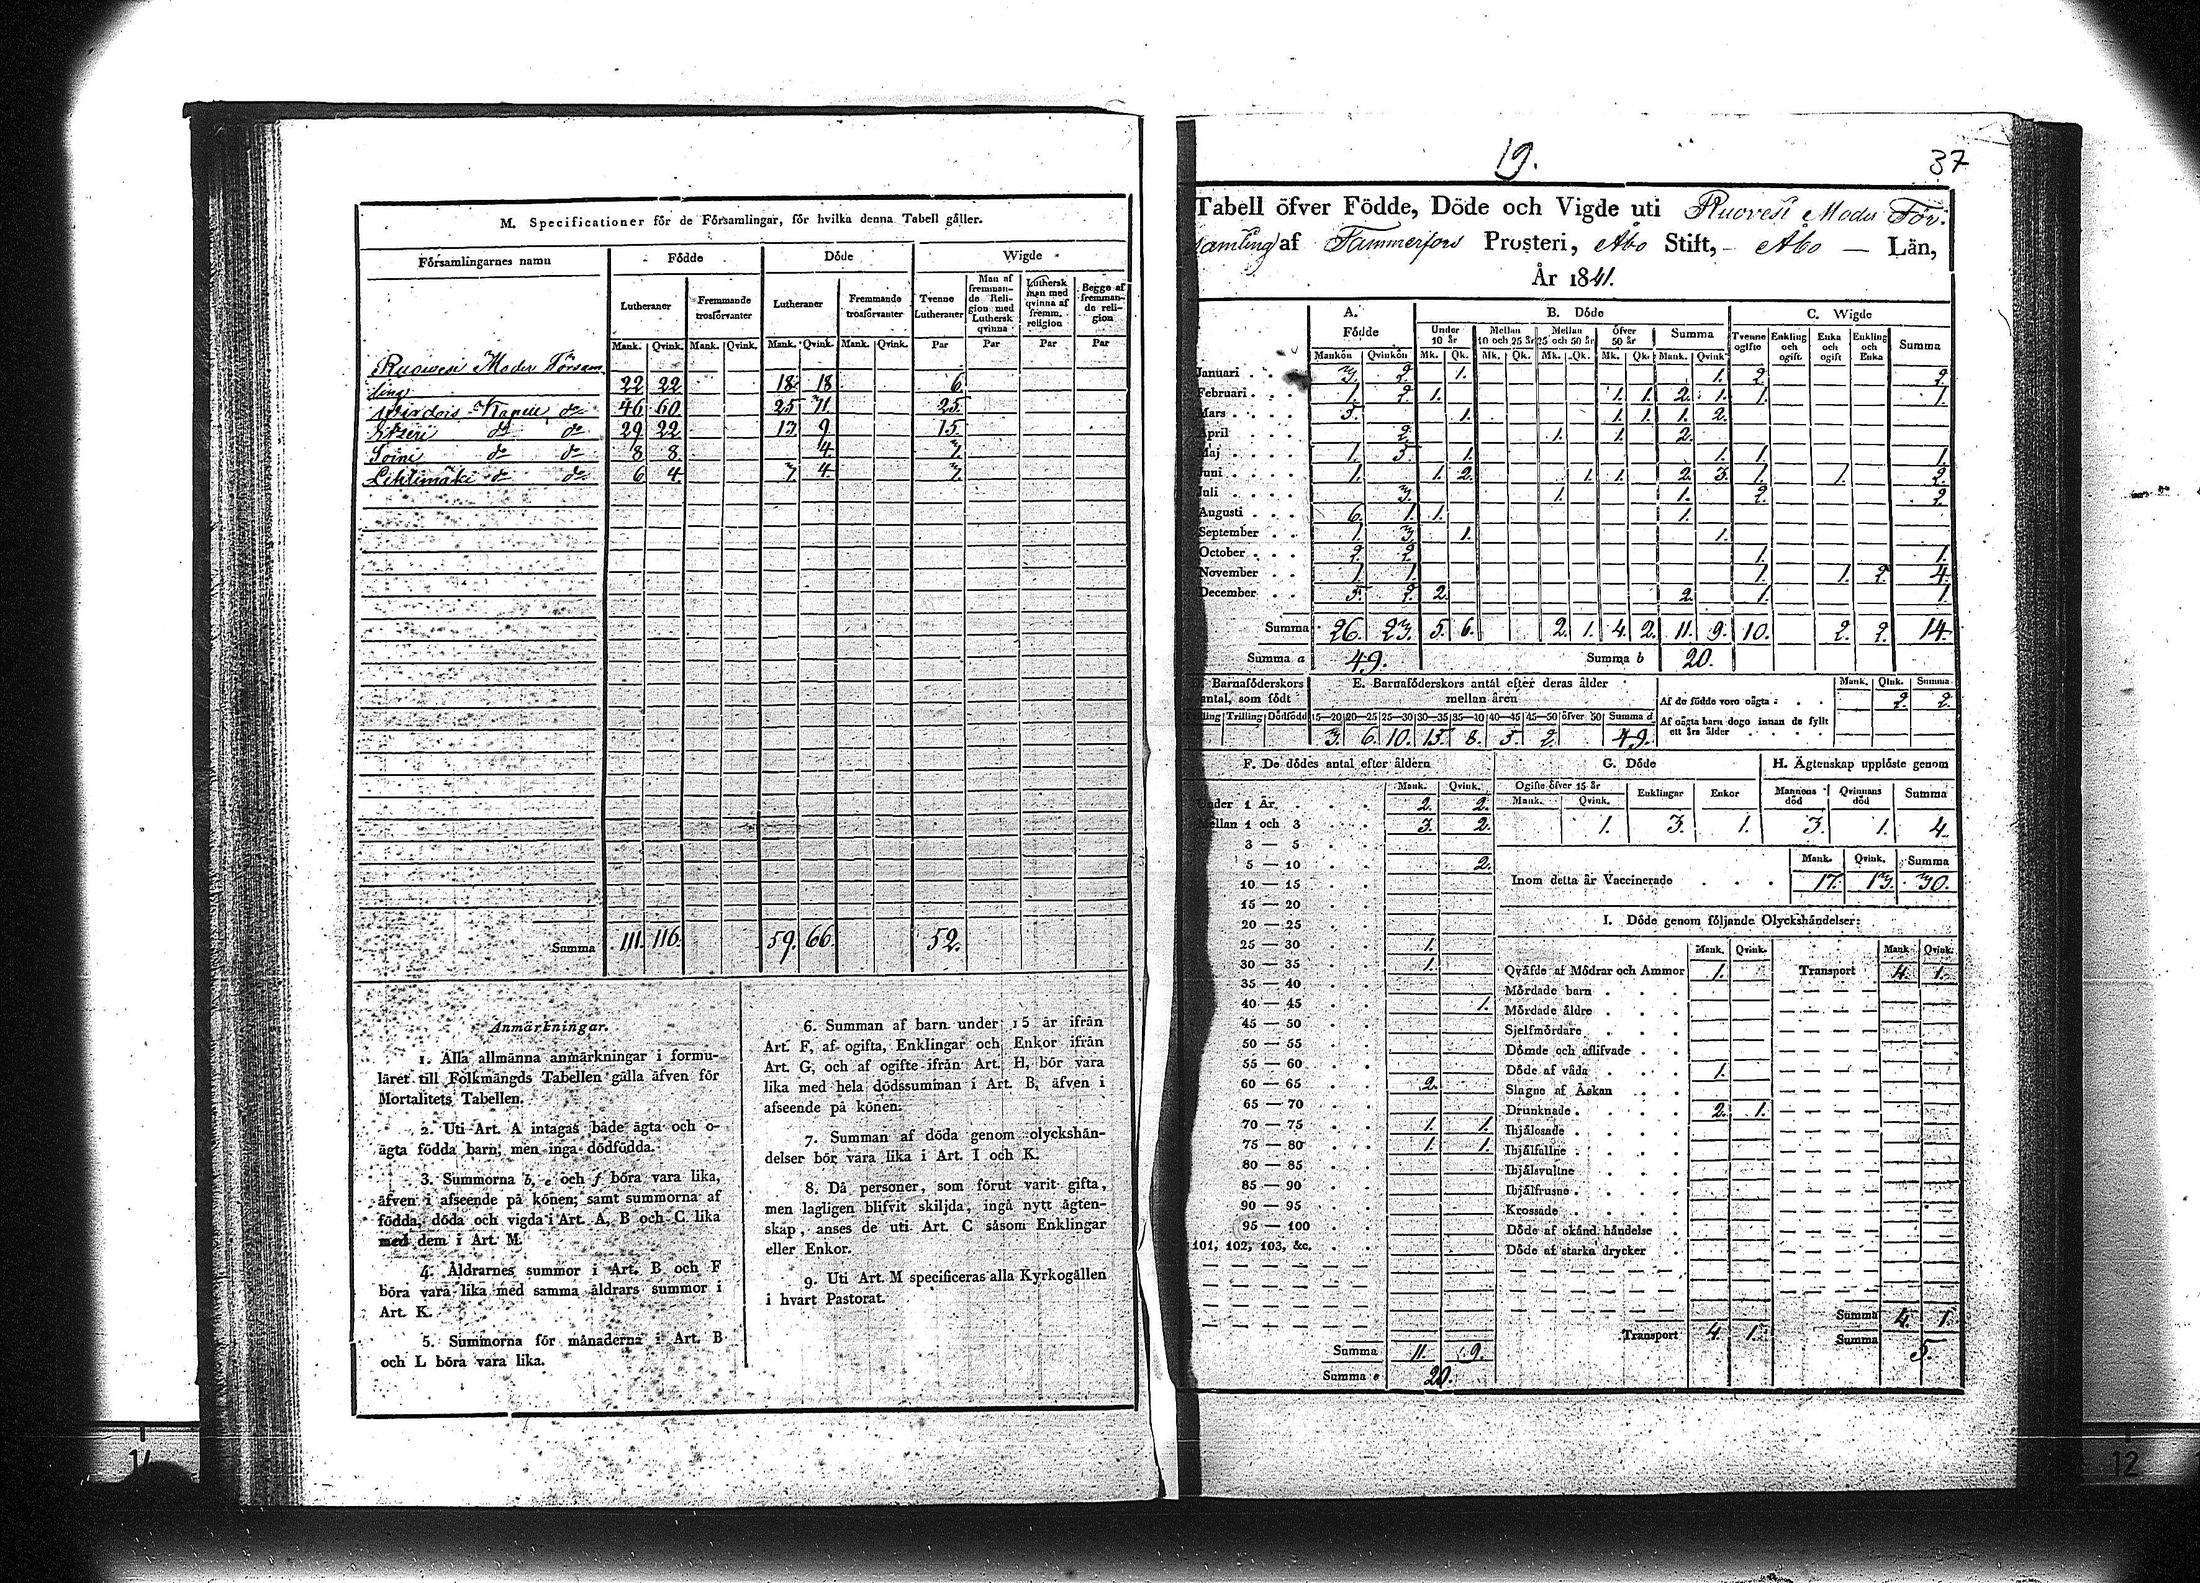 M. Specificationer för de Församlingar, för hvilka denna Tabell gäller.
Församlingarnes namn Födde Döde Wigde
Lutheraner Fremmande trosförvanter Lutheraner Fremmande trosförvanter Tvenne Lutheraner Man af fremmande Religion med Luthersk qvinna Luthersk man med qvinna af fremm. religion Begge af fremmande religion
Mank. Qvink. Mank. Qvink. Mank. Qvink. Mank. Qvink. Par Par Par Par
Ruovesi Moder Församling 22 22 18 18 6
Kapell do 46 60 25 31 25
do do 29 22 13 9 15
Soini do do 8 8 4 3
do do 6 4 3 4 3
Summa 111 116 59 66 52
Anmärkningar.
1. Alla allmänna anmärkningar i formu-
läret till Folkmängds Tabellen gälla äfven för
Mortalitets Tabellen.
2. Uti Art. A intagas både ägta och o-
ägta födda barn, men inga dödfödda.
3. Summorna b, e och f böra vara lika,
äfven i afseende på könen; samt summorna af
födda, döda och vigda i Art. A, B och C lika
med dem i Art. M.
4. Åldrarnes summor i Art. B och F
böra vara lika med samma åldrars summor i
Art. K.
5. Summorna för månaderna i Art. B
och L böra vara lika.
6. Summan af barn under 15 år ifrån
Art. F, af ogifta, Enklingar och Enkor ifrån
Art. G, och af ogifte ifrån Art. H, bör vara
lika med hela dödssumman i Art. B, äfven i
afseende på könen.
7. Summan af döda genom olyckshän-
delser bör vara lika i Art. I och K.
8. Då personer, som förut varit gifta,
men lagligen blifvit skiljda, ingå nytt ägten-
skap, anses de uti Art. C såsom Enklingar
eller Enkor.
9. Uti Art. M specificeras alla Kyrkogällen
i hvart Pastorat.
19.
37
Tabell öfver Födde, Döde och Vigde uti Ruovesi Moder För-
samling af Tammerfors Prosteri, Åbo Stift, - Åbo - Län,
År 1841.
A. Födde B. Döde C. Wigde
Under 10 år Mellan 10 och 25 år Mellan 25 och 50 år Öfver 50 år Summa Tvenne ogifte Enkling och ogift Enka och ogift Enkling och Enka Summa
Mankön Qvinkön Mk. Qk. Mk. Qk. Mk. Qk. Mk. Qk. Mank. Qvink.
Januari 3. 2. 1. 1. 2. 2.
Februari 1. 2. 1. 1. 1. 2. 1. 1. 1.
Mars 5. 1. 1. 1. 1. 2.
April 2. 1. 1. 2.
Maj 1. 5. 1. 1. 1. 1.
Juni 1. 1. 2. 1. 1. 2. 3. 1. 1. 2.
Juli 3. 1. 1. 2. 2.
Augusti 6. 1. 1. 1.
September 1. 3. 1. 1.
October 2. 2. 1. 1.
November 1. 1. 1. 1. 2. 4.
December 5. 2. 2. 2. 1. 1.
Summa 26. 23. 5. 6. 2. 1. 4. 2. 11. 9. 10. 2. 2. 14.
Summa a 49. Summa b 20.
Barnaföderskors antal, som födt
Trilling Dödfödd
E. Barnaföderskors antal efter deras ålder
mellan åren
15—20 20—25 25—30 30—35 35—40 40—45 45—50 öfver 50 Summa d
3. 6. 10. 15. 8. 5. 2. 49.
Mank. Qink. Summa
Af de födde voro oägta 2. 2.
Af oägta barn dogo innan de fyllt
ett års ålder
F. De dödes antal efter åldern
Mank. Qvink.
Under 1 År 2. 2.
Mellan 1 och 3 3. 2.
3 — 5
5 — 10 2.
10 — 15
15 — 20
20 — 25
25 — 30 1.
30 — 35 1.
35 — 40
40 — 45 1.
45 — 50
50 — 55
55 — 60
60 — 65 2.
65 — 70
70 — 75 1. 1.
75 — 80 1. 1.
80 — 85
85 — 90
90 — 95
95 — 100
101, 102, 103, &c.
Summa 11. 9.
Summa e 20.
G. Döde
Ogifte öfver 15 år Enklingar Enkor
Mank. Qvink.
1. 3. 1.
H. Ägtenskap upplöste genom
Mannens död Qvinnans död Summa
3. 1. 4.
Mank. Qvink. Summa
Inom detta år Vaccinerade 17. 13. 30.
I. Döde genom följande Olyckshändelser:
Mank. Qvink. Mank. Qvink.
Qväfde af Mödrar och Ammor 1. Transport 4. 1.
Mördade barn
Mördade äldre
Sjelfmördare
Dömde och aflifvade
Döde af våda 1.
Slagne af Åskan
Drunknade 2. 1.
Ihjälosade
Ihjälfallne
Ihjälsvultne
Ihjälfrusne
Krossade
Döde af okänd händelse
Döde af starka drycker
Summa 4. 1.
Transport 4. 1. Summa 5.
12